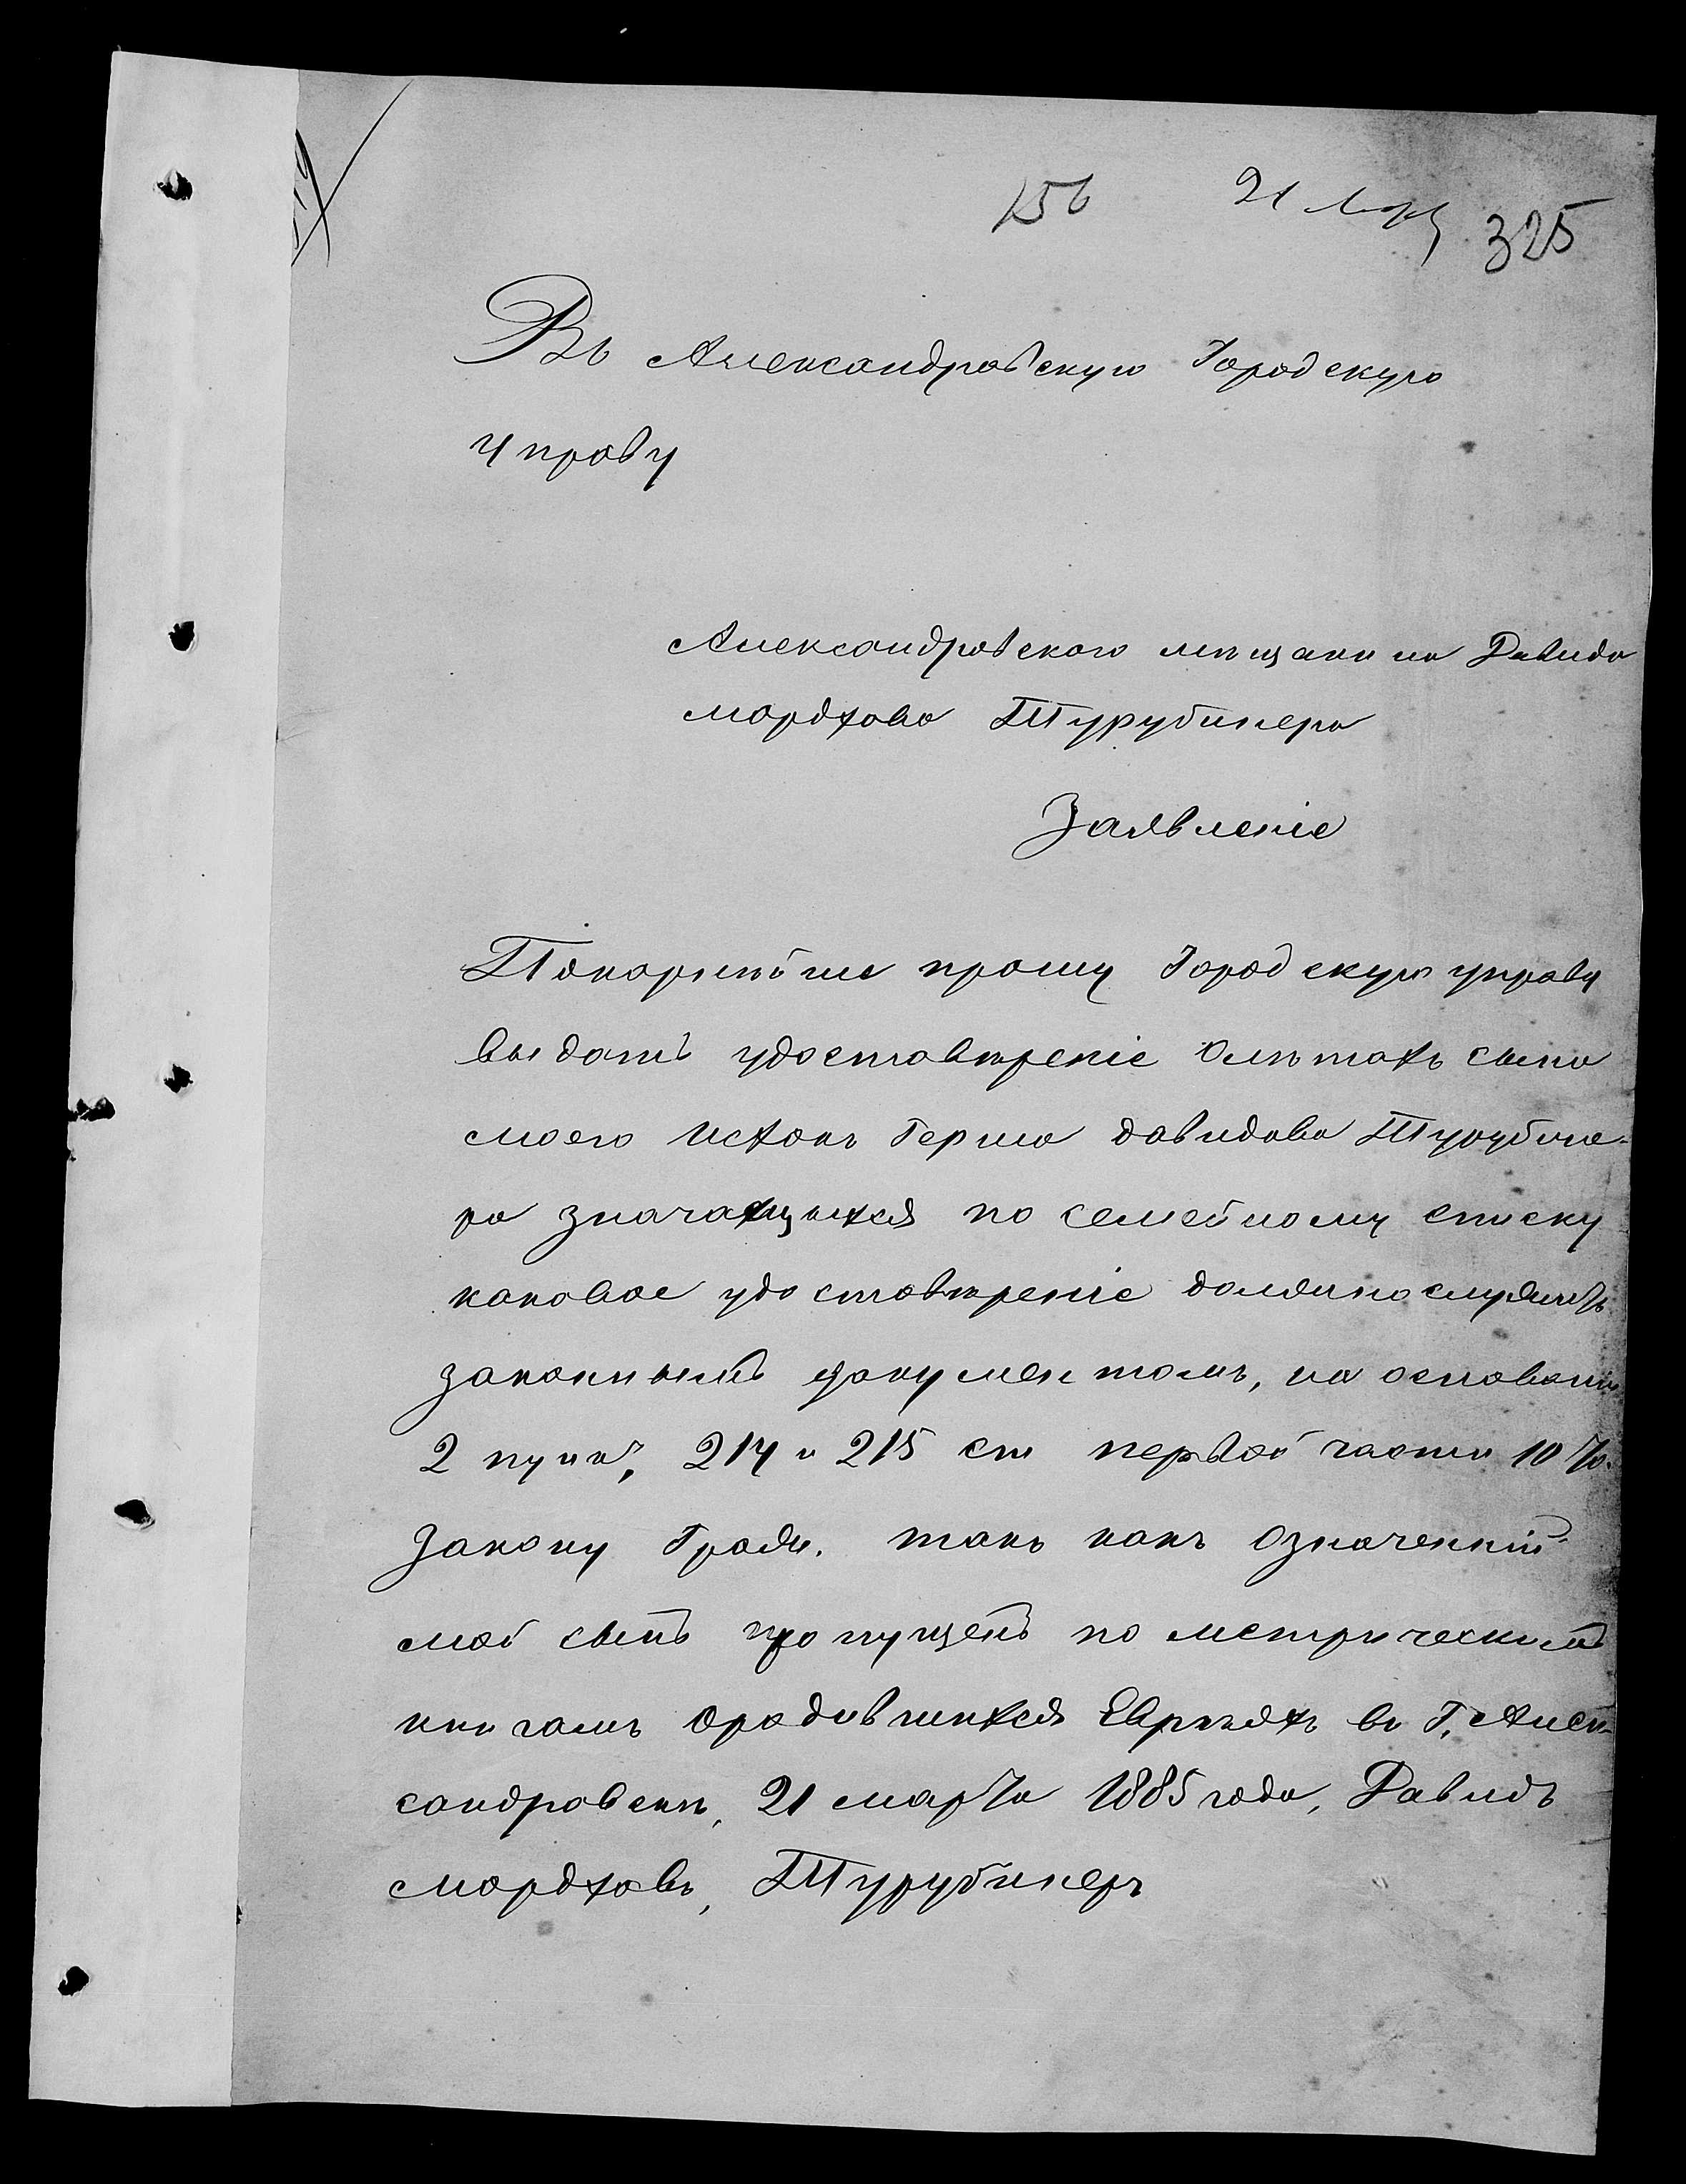 156 21 Мар 325
Въ Александровскую Городскую
Управу
Александровского мѣщанина Давида
мордхова Турубинера
Заявленіе
Покорнѣйше прошу Городскую управу
выдать удостовѣреніе Олѣтахъ сына
моего Исхокъ Герша давидова Турубине-
ра значащихся по семейному списку
каковое удостовѣреніе должно служить
законнымъ документомъ, на основании
2 пунк, 214 и 215 ст первой части 10 То.
Закону Гражд. такъ какъ Означенній
мой сынъ пропущенъ по метрическимъ
книгамъ Ородившихся Евреяхъ въ Г. Алек-
сандровскѣ, 21 марта 1885 года, Давидъ
мордховъ, Турубинеръ